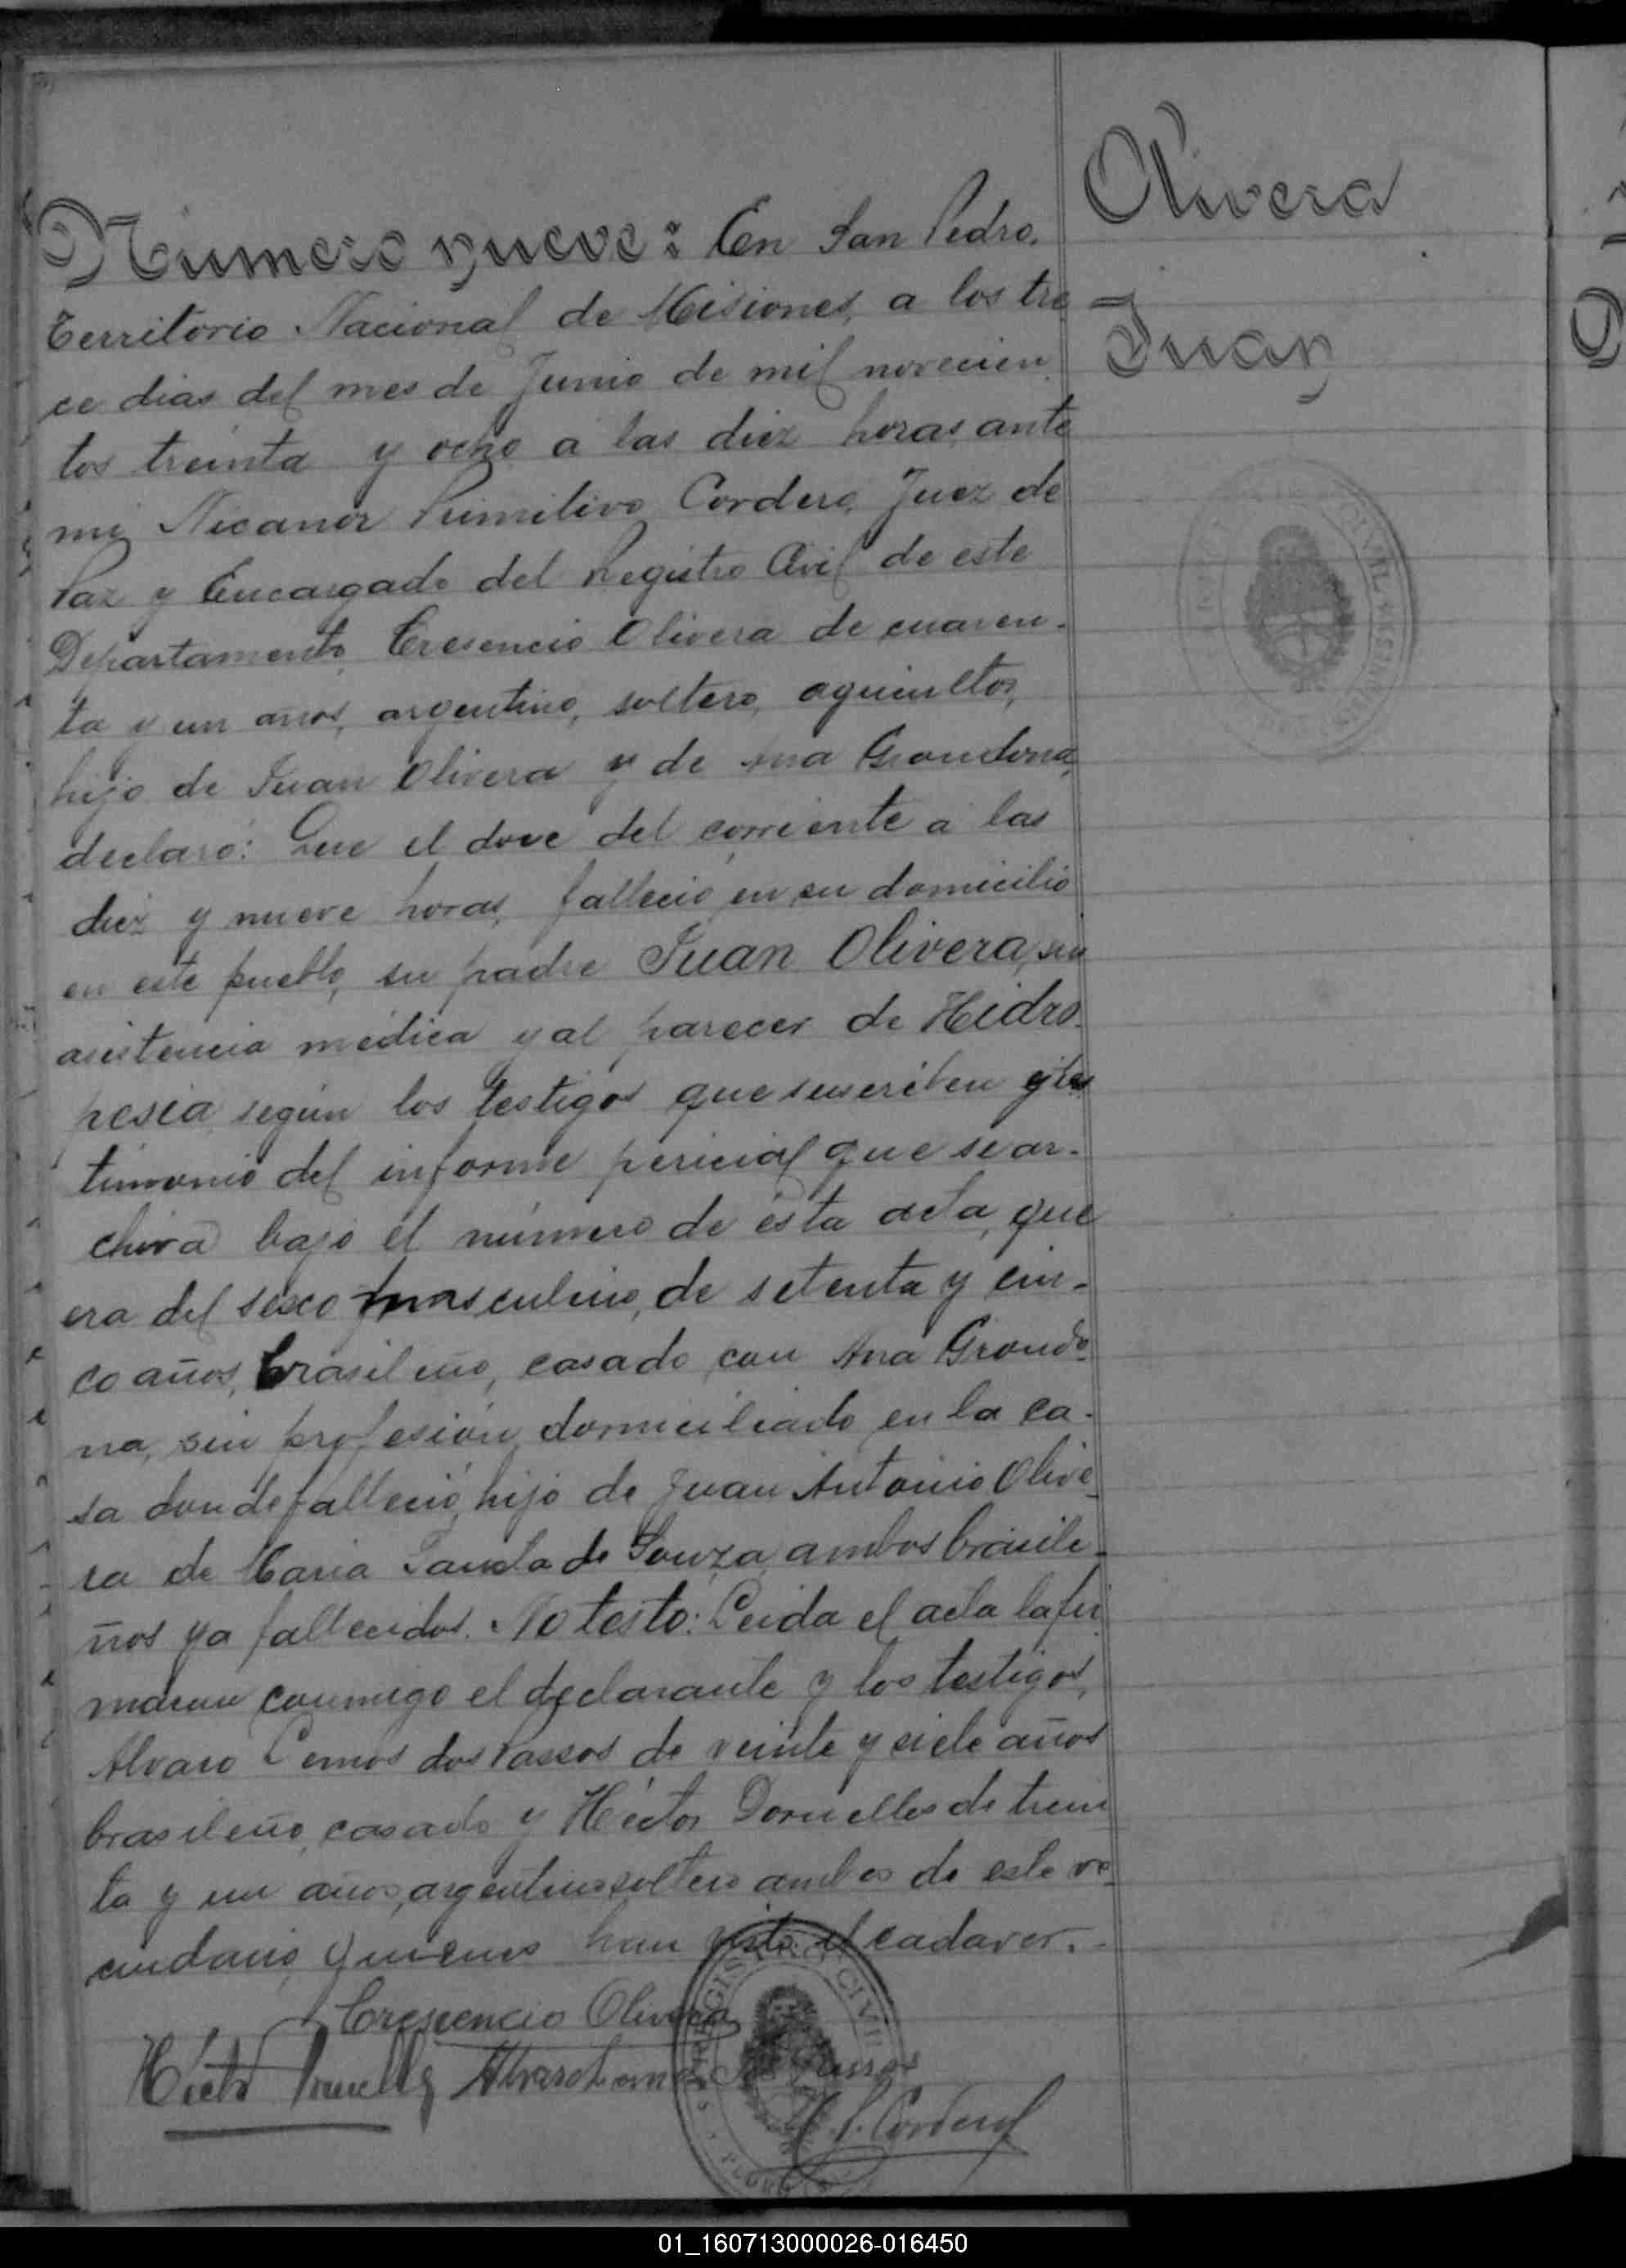 Olivera
=
Juan
Numero nueve: En San Pedro,
Territorio Nacional de Misiones, a los tre
ce dias del mes de Junio de mil novecien
tos treinta y ocho a las diez horas, ante
mi Nicanor Primitivo Cordero, Juez de
Paz y Encargado del Registro Civil de este
Departamento, Cresencio Olivera de cuaren-
ta y un años, argentino, soltero, agricultor,
hijo de Juan Olivera y de Ana Grondona,
declaró: Que el doce del corriente a las
diez y nueve horas, falleció en su domicilio
en este pueblo, su padre Juan Olivera, sin
asistencia médica y al parecer de Hidro-
pesia según los testigos que suscriben y tes
timonio del informe pericial que se ar-
chiva bajo el número de ésta acta, que
era del sexo masculino, de setenta y cin-
co años, brasileño, casado con Ana Grondo-
na, sin profesión, domiciliado en la ca-
sa donde falleció, hijo de Juan Antonio Olive-
ra de Maria de Souza, ambos brasile-
ños ya fallecidos. No testó: Leida el acta la fir
maron conmigo el declarante y los testigos,
Alvaro Lemos dos Passos de veinte y siete años
brasileño, casado y Héctor Dornelles de trein
ta y un años, argentino, soltero ambos de este ve-
cindario, quienes han visto el cadaver.
Crescencio Olivera
Héctor Dornelles Alvaro Lemos dos Passos
P. Cordero
REGISTRO CIVIL
01_160713000026-016450